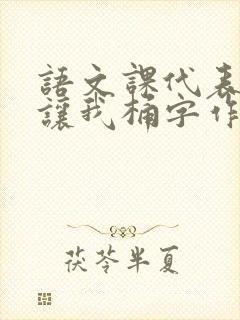 語文課代表
讓我桶字作
茯苓半夏